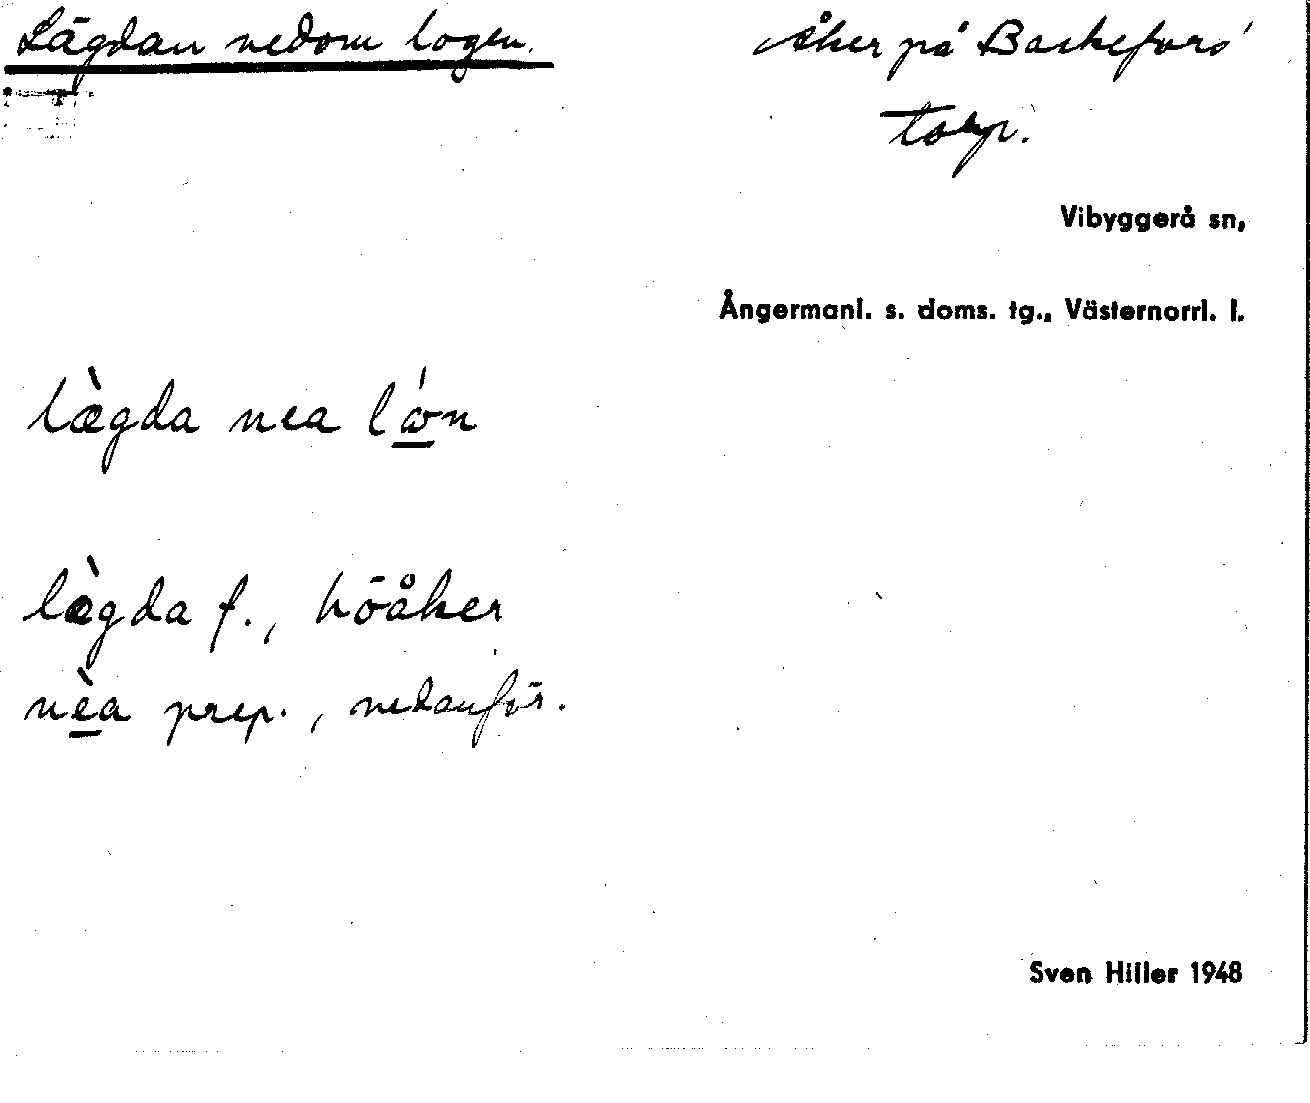 Lägdan nedom logen.
Åker på Baskefors'
torp.
Vibyggerå sn,
Ångermanl. s. doms. tg., Västernorrl. l.
lὰgda nea
lægda f., höåker
nèa prep., nedanför.
Sven Hiller 1948